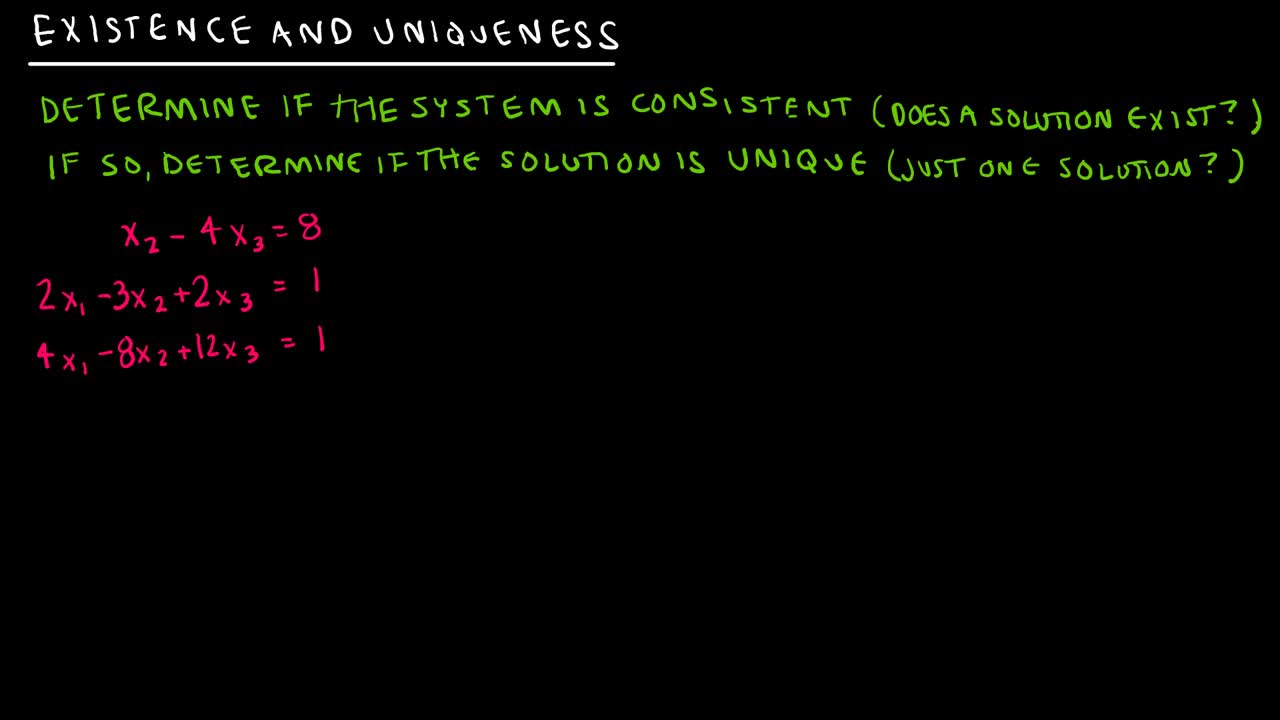 EXISTENCE AND UNIQUENESS
DETERMINE IF THE SYSTEM IS CONSISTENT (DOES A SOLUTION EXIST?)
IF SO, DETERMINE IF THE SOLUTION IS UNIQUE (JUST ONE SOLUTION?)
x₂ - 4x₃ = 8
2x₁ - 3x₂ + 2x₃ = 1
4x₁ - 8x₂ + 12x₃ = 1